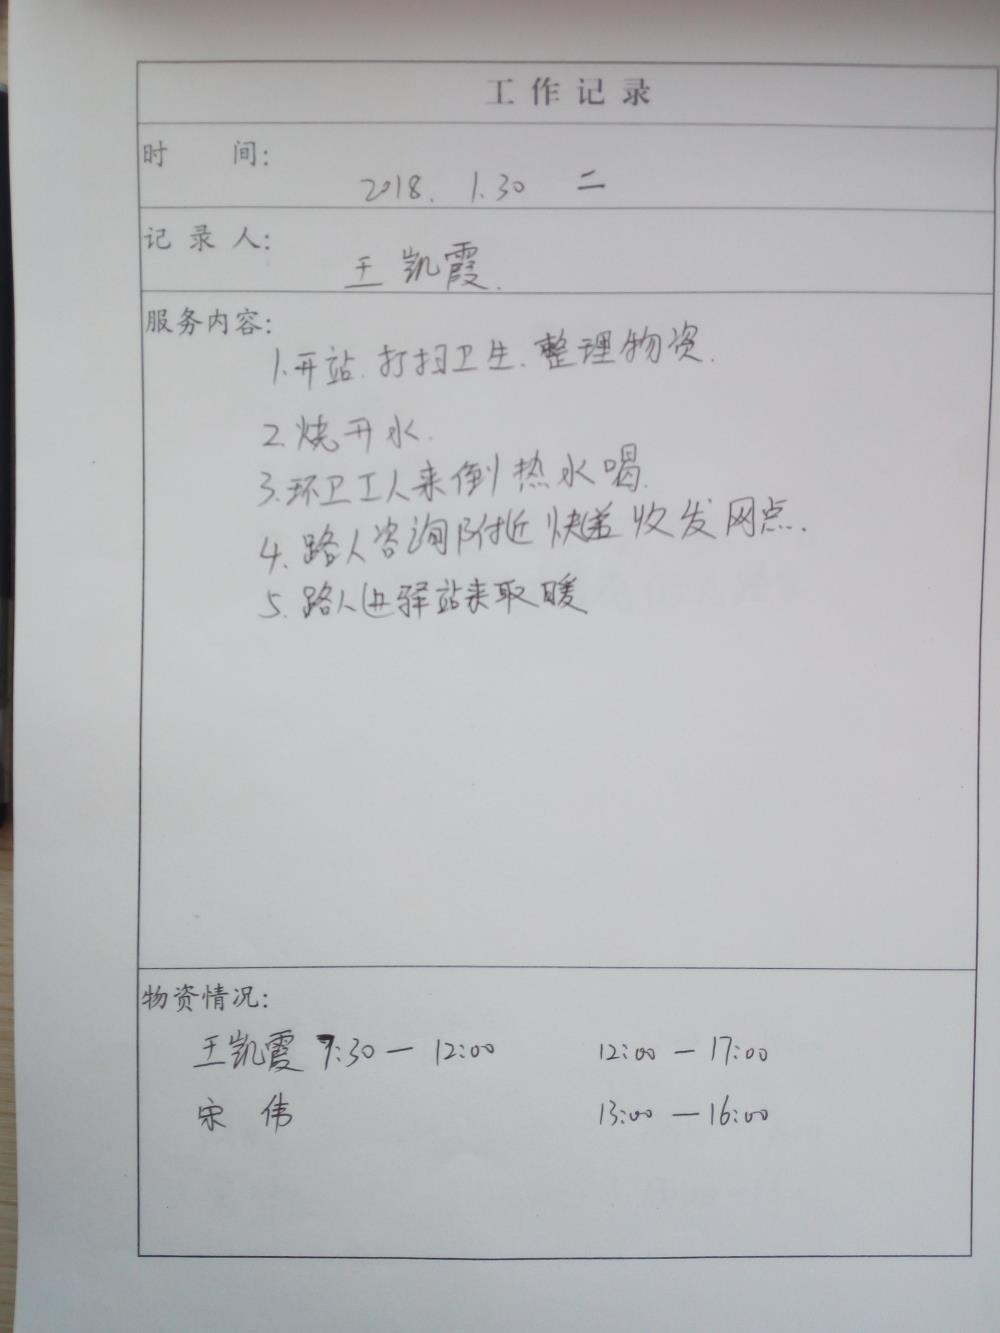 工作记录
时 间：
2018. 1.30 二
记录人：
王凯霞.
服务内容：
1.开站.打扫卫生.整理物资.
2.烧开水.
3.环卫工人来倒热水喝.
4.路人咨询附近快递收发网点.
5.路人进驿站来取暖
物资情况：
王凯霞 :30—12:00 12:00—17:00
宋 伟 13:00—16:00